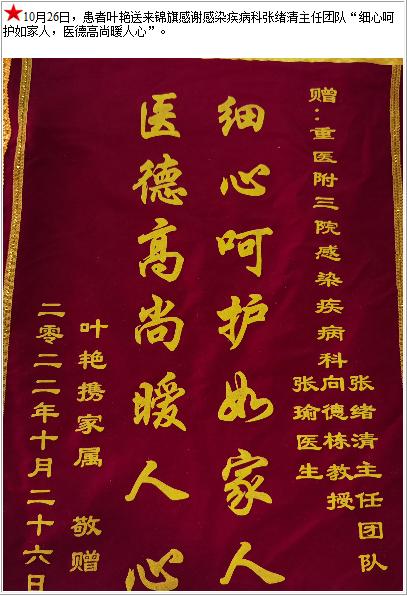 ★10月26日，患者叶艳送来锦旗感谢感染疾病科张绪清主任团队“细心呵
护如家人，医德高尚暖人心”。
赠：重医附三院感染疾病科
张绪清主任团队
向德栋教授
张瑜医生
细心呵护如家人
医德高尚暖人心
叶艳携家属 敬赠
二零二二年十月二十六日